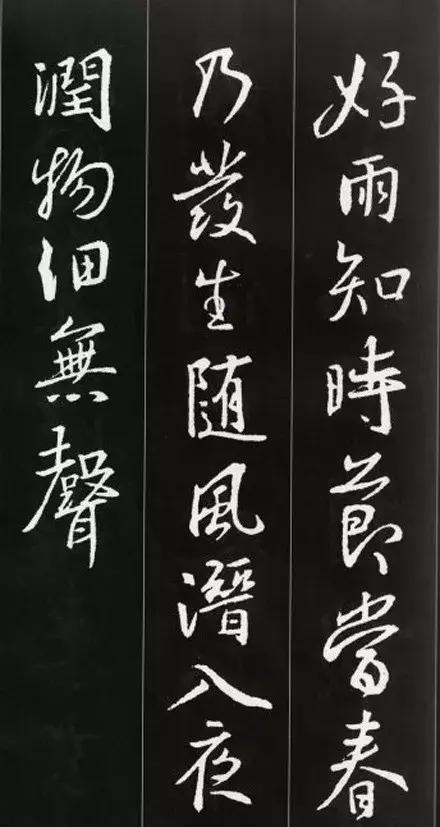 好雨知時節當春
乃發生隨風潛入夜
潤物細無聲